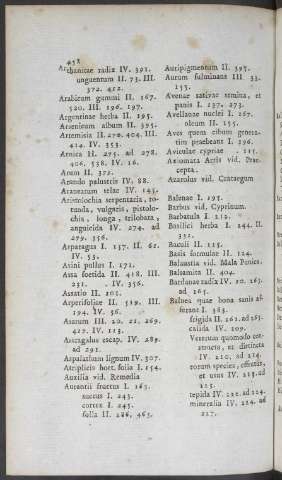 458
Arthanitae radix IV. 391.
unguentum II. 73. III.
372. 412.
Arabicum gummi II. 167.
520. III. 196. 197.
Argentinae herba II. 195.
Arsenicum album II. 395.
Artemisia II. 270. 404. III.
414. IV. 353.
Arnica II. 275. ad 278.
406. 538. IV. 16.
Arum II. 372.
Arundo palustris IV. 88.
Aranearum telae IV. 145.
Aristolochia serpentaria, rotunda,
vulgaris, pistolochia,
longa, trilobata,
anguicida IV. 274. ad
279. 356.
Asparagus I. 137. II. 62.
IV. 55.
Asini pullus I. 171.
Assa foetida II. 418. III.
231. IV. 356.
Assatio II. 103.
Asperifoliae II. 519. III.
194. IV. 56.
Asarum III. 20. 21. 269.
427. IV. 113.
Astragalus escap. IV. 289.
ad 291.
Aspalathum lignum IV. 307.
Atriplicis hort. folia I. 154.
Auxilia vid. Remedia
Aurantii fructus I. 163.
succus I. 243.
cortex I. 243.
folia II. 286. 463.
Auripigmentum II. 395.
Aurum fulminans III. 33.
155.
Avenae sativae semina, et
panis I. 237. 273.
Avellanae nuclei I. 167.
oleum II. 155.
Aves quem cibum generatim
praebeant I. 396.
Aviculae cypriae . 115.
Axiomata Artis vid. Praecepta.
Azarolus vid. Crataegum
Balenae I. 195.
Barbus vid. Cyprinum.
Barbatula I. 212.
Basilici herba I. 244. II.
352.
Baculi II. 115.
Basis formulae II. 124.
Balaustia vid. Mala Punica.
Balsamita II. 404.
Bardanae radix IV. 10. 263.
ad 265.
Balnea quae bona sanis afferant
I. 383.
frigida II. 262. ad 263.
calida IV. 209.
Veterum quomodo constructa,
et distincta
IV. 210. ad 214.
eorum species, effectus,
et usus IV. 215. ad
225.
tepida IV. 222. ad 224.
mineralia IV. 224. ad
227.